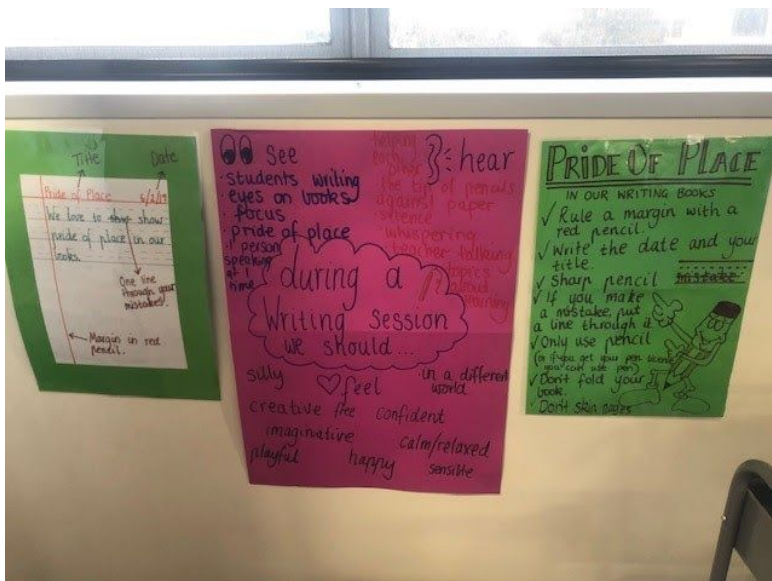 Title
Date
Pride of Place 5/2/19
We love to show
pride of place in our
books.
One line
through your
mistakes.
Margin in red
pencil.
See
• students writing
• eyes on books
• focus
• pride of place
• 1 person
speaking
at 1
time
hear
helping
each
other
the tip of pencils
against paper
silence
whispering
teacher talking
topics
about
learning
during a
Writing Session
we should...
feel
silly
in a different
world
creative free confident
imaginative
calm/relaxed
playful
happy
sensible
PRIDE OF PLACE
IN OUR WRITING BOOKS
✓ Rule a margin with a
red pencil.
✓ Write the date and your
title.
✓ Sharp pencil
mistake
✓ If you make
a mistake, put
a line through it
✓ Only use pencil
(or if you get your pen license
you can use pen)
✓ Don't fold your
book.
• Don't skip pages